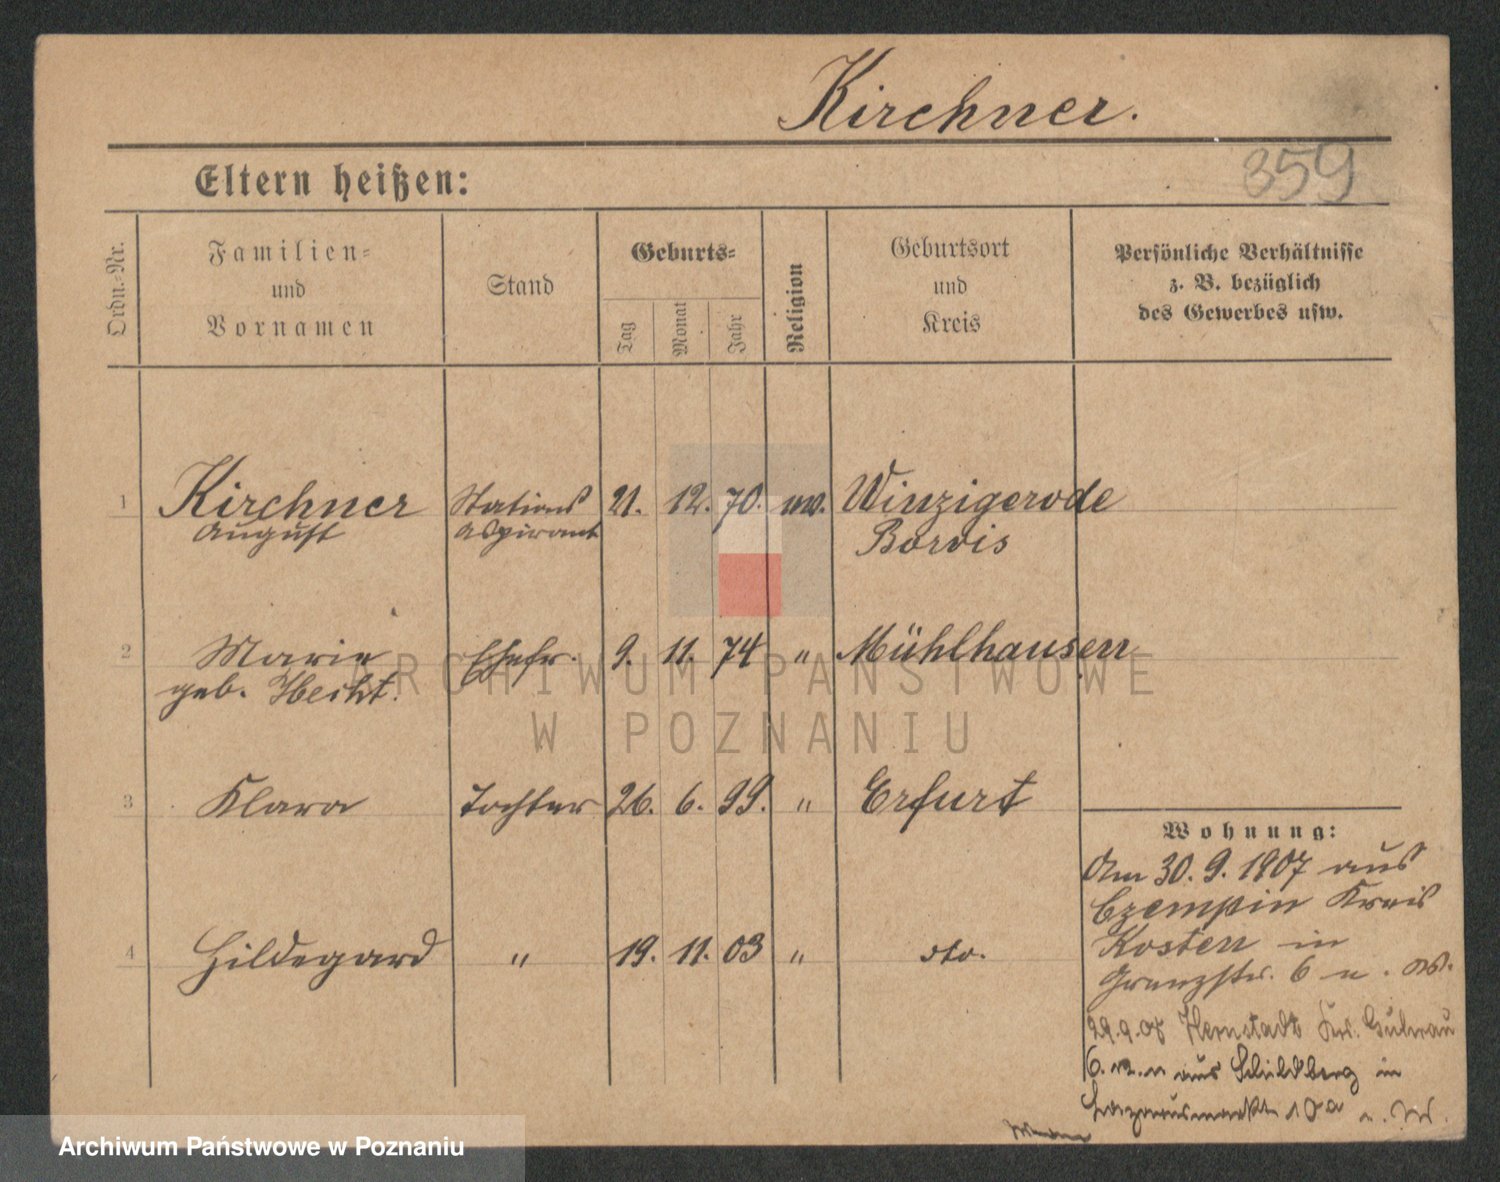 Kirchner.
359
Eltern heißen:
Ordn.=Nr.
Familien=
und
Vornamen
Stand
Geburts=
Tag
Monat
Jahr
Religion
Geburtsort
und
Kreis
Persönliche Verhältnisse
z. B. bezüglich
des Gewerbes usw.
1 Kirchner Stations 21. 12. 70. Winzigerode
August Aspirant
2 Marie Ehefr. 9. 11. 74 " Mühlhausen
geb. Hecht.
3 Klara Tochter 26. 6. 99. " Erfurt
4 Hildegard " 19. 11. 03 " dto.
Wohnung:
Am 30. 9. 1907 aus
Czempin Kreis
Kosten in
Grenzstr. 6
Kr. Guhrau
aus Schildberg in
Lazarusmarkt 10a
ARCHIWUM PAŃSTWOWE
W POZNANIU
Archiwum Państwowe w Poznaniu